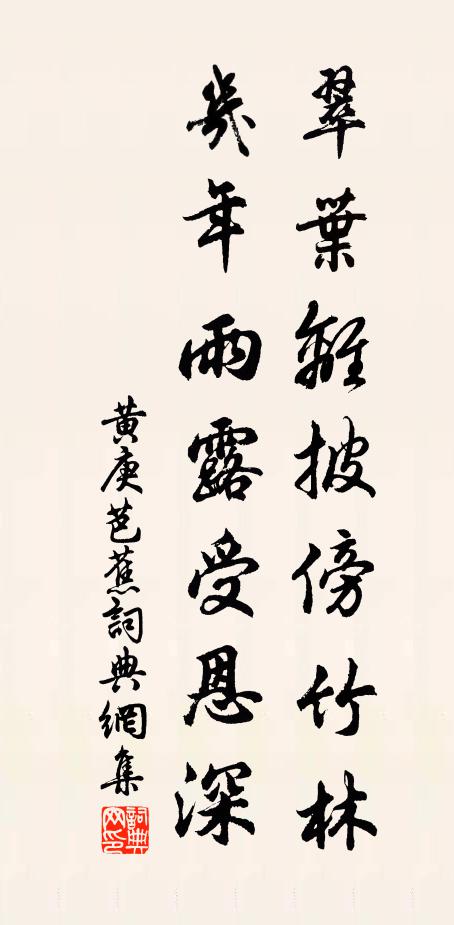 翠葉離披傍竹林
幾年雨露受恩深
黄庚芭蕉詞典網集
詞典网印